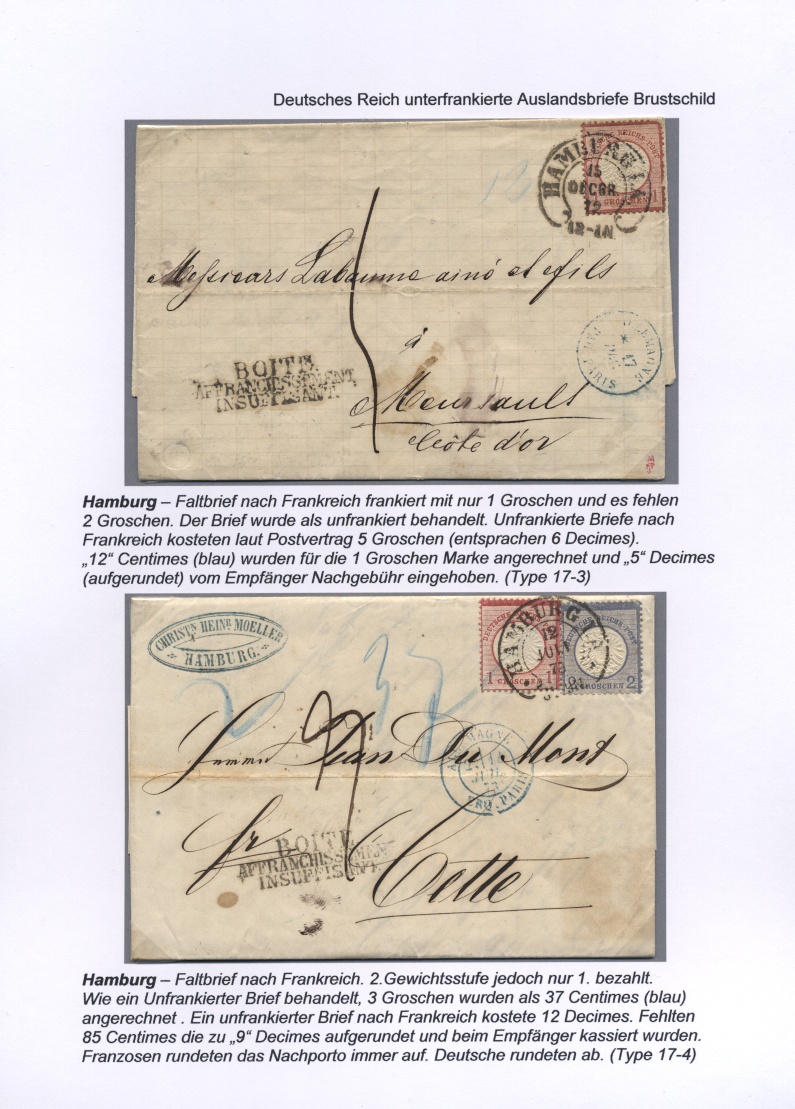 Deutsches Reich unterfrankierte Auslandsbriefe Brustschild
HAMBURG
15
DECBR.
72
12-1N
12
REICHS-POST
GROSCHEN 1
Messieurs Labaume ainé et fils
à
Meursault
Côte d'or
5
BOITE
AFFRANCHISSEMENT
INSUFFISANT.
ALLEMAGNE
PARIS
Hamburg – Faltbrief nach Frankreich frankiert mit nur 1 Groschen und es fehlen
2 Groschen. Der Brief wurde als unfrankiert behandelt. Unfrankierte Briefe nach
Frankreich kosteten laut Postvertrag 5 Groschen (entsprachen 6 Decimes).
„12“ Centimes (blau) wurden für die 1 Groschen Marke angerechnet und „5“ Decimes
(aufgerundet) vom Empfänger Nachgebühr eingehoben. (Type 17-3)
CHRISTN HEINR MOELLER
HAMBURG.
HAMBURG
12
JULI
1 GROSCHEN 1
2 GROSCHEN 2
2
37
9
Jean Du Mont
fr.
Cette
ALLEMAGNE
ERQ. PARIS
BOITE
AFFRANCHISSEMEN
INSUFFISANT
Hamburg – Faltbrief nach Frankreich. 2.Gewichtsstufe jedoch nur 1. bezahlt.
Wie ein Unfrankierter Brief behandelt, 3 Groschen wurden als 37 Centimes (blau)
angerechnet . Ein unfrankierter Brief nach Frankreich kostete 12 Decimes. Fehlten
85 Centimes die zu „9“ Decimes aufgerundet und beim Empfänger kassiert wurden.
Franzosen rundeten das Nachporto immer auf. Deutsche rundeten ab. (Type 17-4)